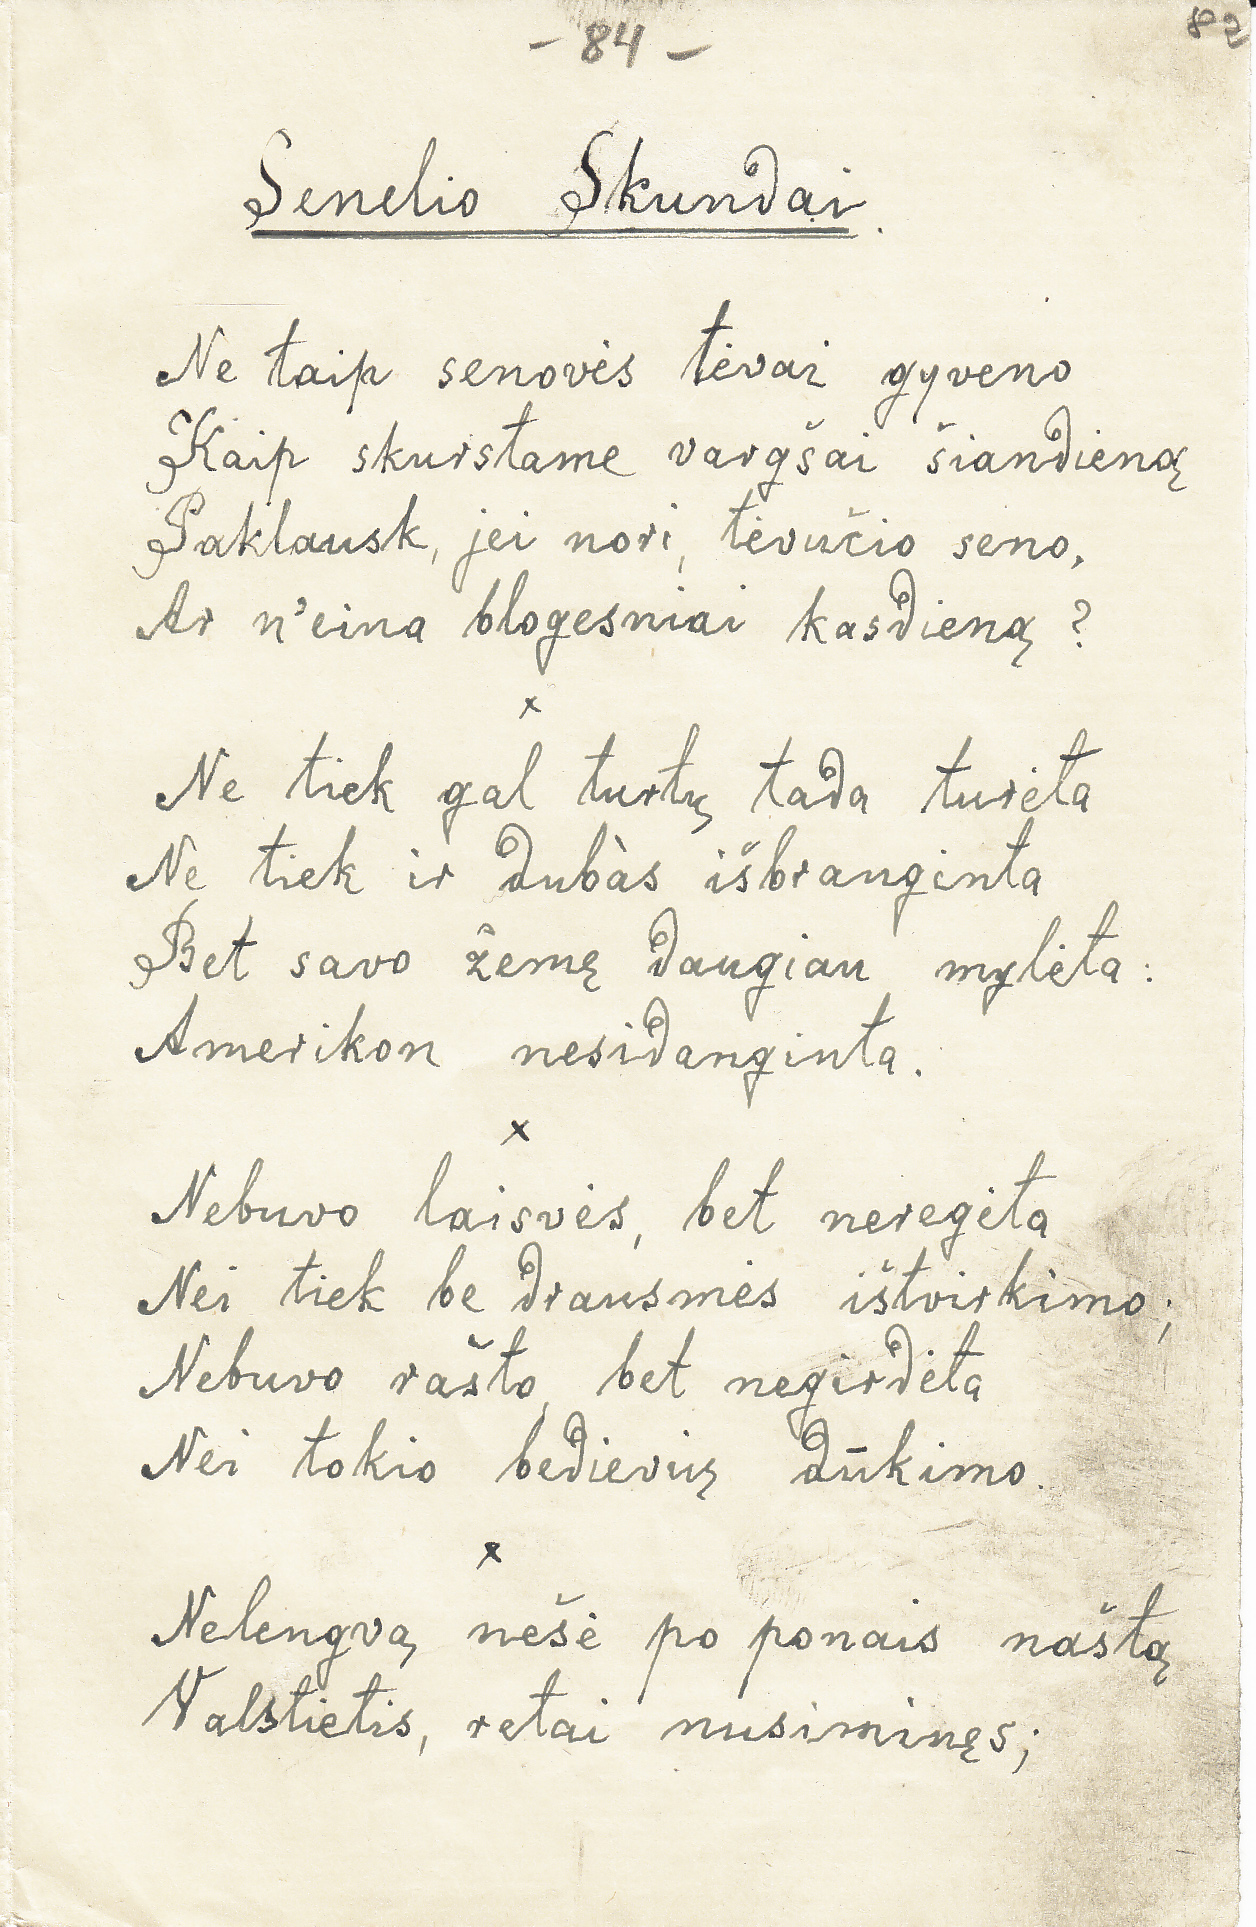 - 84 -
82
Senelio Skundai.
Ne taip senovės tėvai gyveno
Kaip skurstame vargšai šiandieną
Paklausk, jei nori, tėvučio seno,
Ar n'eina blogesniai kasdieną?
x
Ne tiek gal turtų tada turėta
Ne tiek ir dubàs išbranginta
Bet savo žemę daugiau mylėta:
Amerikon nesidanginta.
x
Nebuvo laisvės, bet neregėta
Nei tiek be drausmės ištvirkimo;
Nebuvo rašto, bet negirdėta
Nei tokio bedievių dūkimo.
x
Nelengvą nešė po ponais naštą
Valstietis, retai nusiminęs;